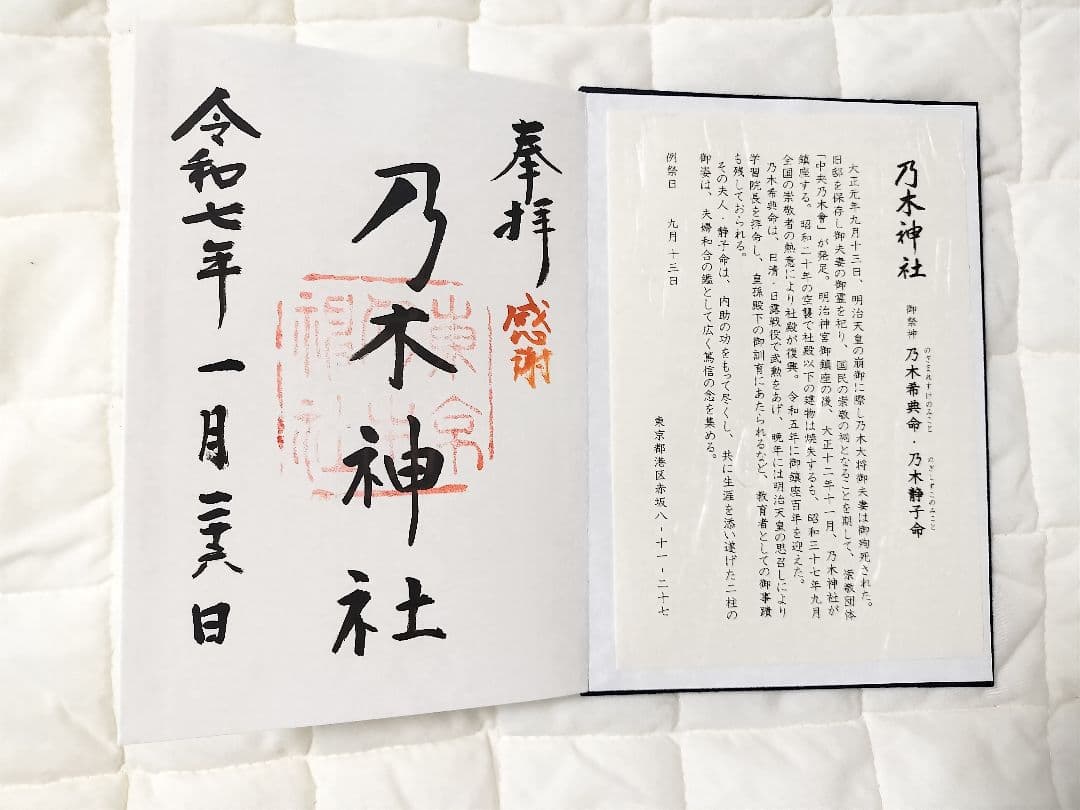 乃木神社
御祭神 乃木希典命・乃木静子命
のぎまれすけのみこと
のぎしずこのみこと
大正元年九月十三日、明治天皇の崩御に際し乃木大将御夫妻は御殉死された。
旧邸を保存し御夫妻の御霊を祀り、国民の崇敬の祠となることを期して、崇敬団体
「中央乃木會」が発足。明治神宮御鎮座の後、大正十二年十一月、乃木神社が
鎮座する。昭和二十年の空襲で社殿以下の建物は焼失するも、昭和三十七年九月
全国の崇敬者の熱意により社殿が復興。令和五年に御鎮座百年を迎えた。
乃木希典命は、日清・日露戦役で武勲をあげ、晩年には明治天皇の思召しにより
学習院長を拝命し、皇孫殿下の御訓育にあたられるなど、教育者としての御事蹟
も残しておられる。
その夫人・静子命は、内助の功をもって尽くし、共に生涯を添い遂げた二柱の
御姿は、夫婦和合の鑑として広く篤信の念を集める。
例祭日 九月十三日
東京都港区赤坂八-十一-二十七
奉拝
感謝
乃木神社
令和七年 一月 二十六日